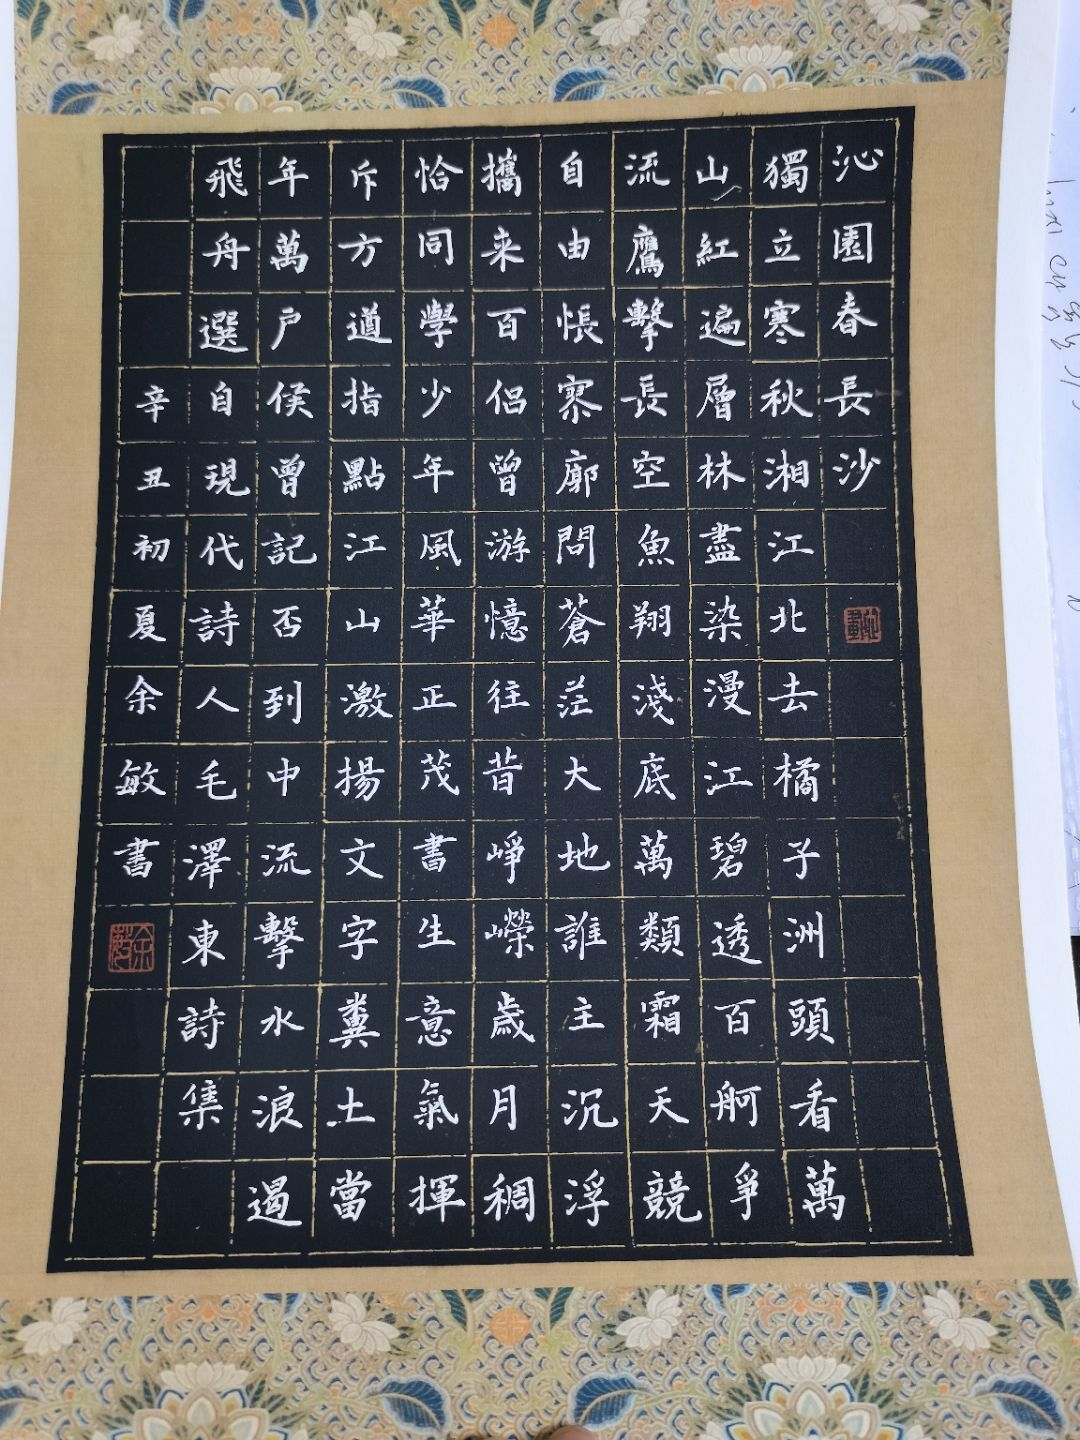 沁園春長沙
獨立寒秋湘江北去橘子洲頭看萬
山紅遍層林盡染漫江碧透百舸爭
流鷹擊長空魚翔淺底萬類霜天競
自由悵寥廓問蒼茫大地誰主沉浮
攜来百侶曾游憶往昔崢嶸歲月稠
恰同學少年風華正茂書生意氣揮
斥方遒指點江山激揚文字糞土當
年萬户侯曾記否到中流擊水浪遏
飛舟選自現代詩人毛澤東詩集
辛丑初夏余敏書